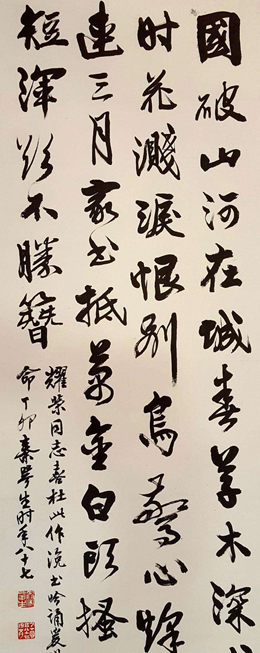 國破山河在城春草木深
时花濺淚恨别鳥驚心烽
連三月家书抵萬金白頭搔
短渾欲不勝簪
耀榮同志喜杜此作浼书吟誦爲
命丁卯秦咢生时年八十七